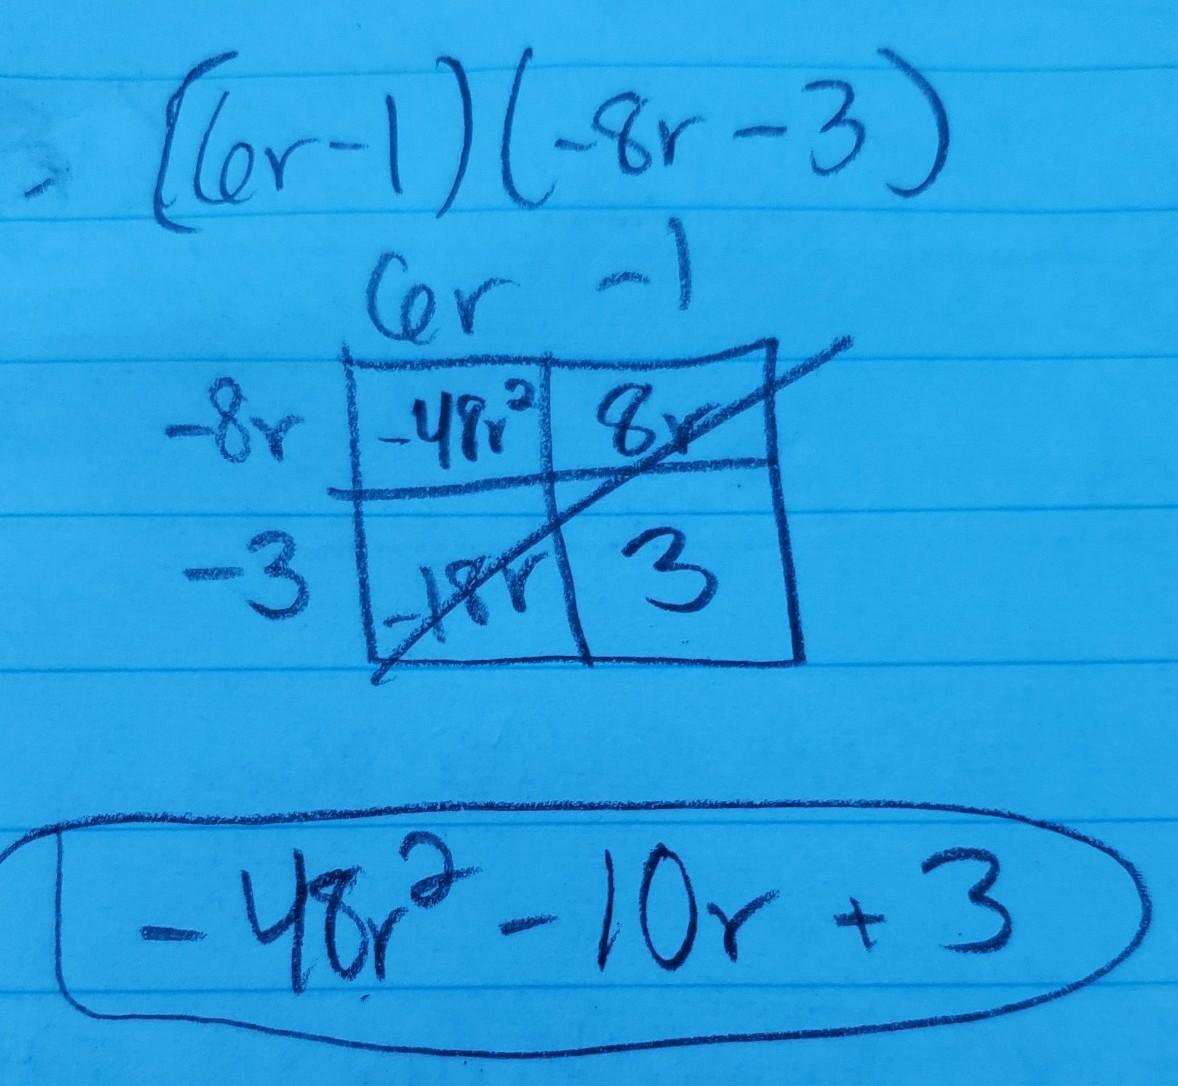 (6r-1)(-8r-3)
6r -1
-8r -48r² 8r
-3 -18r 3
-48r² - 10r + 3